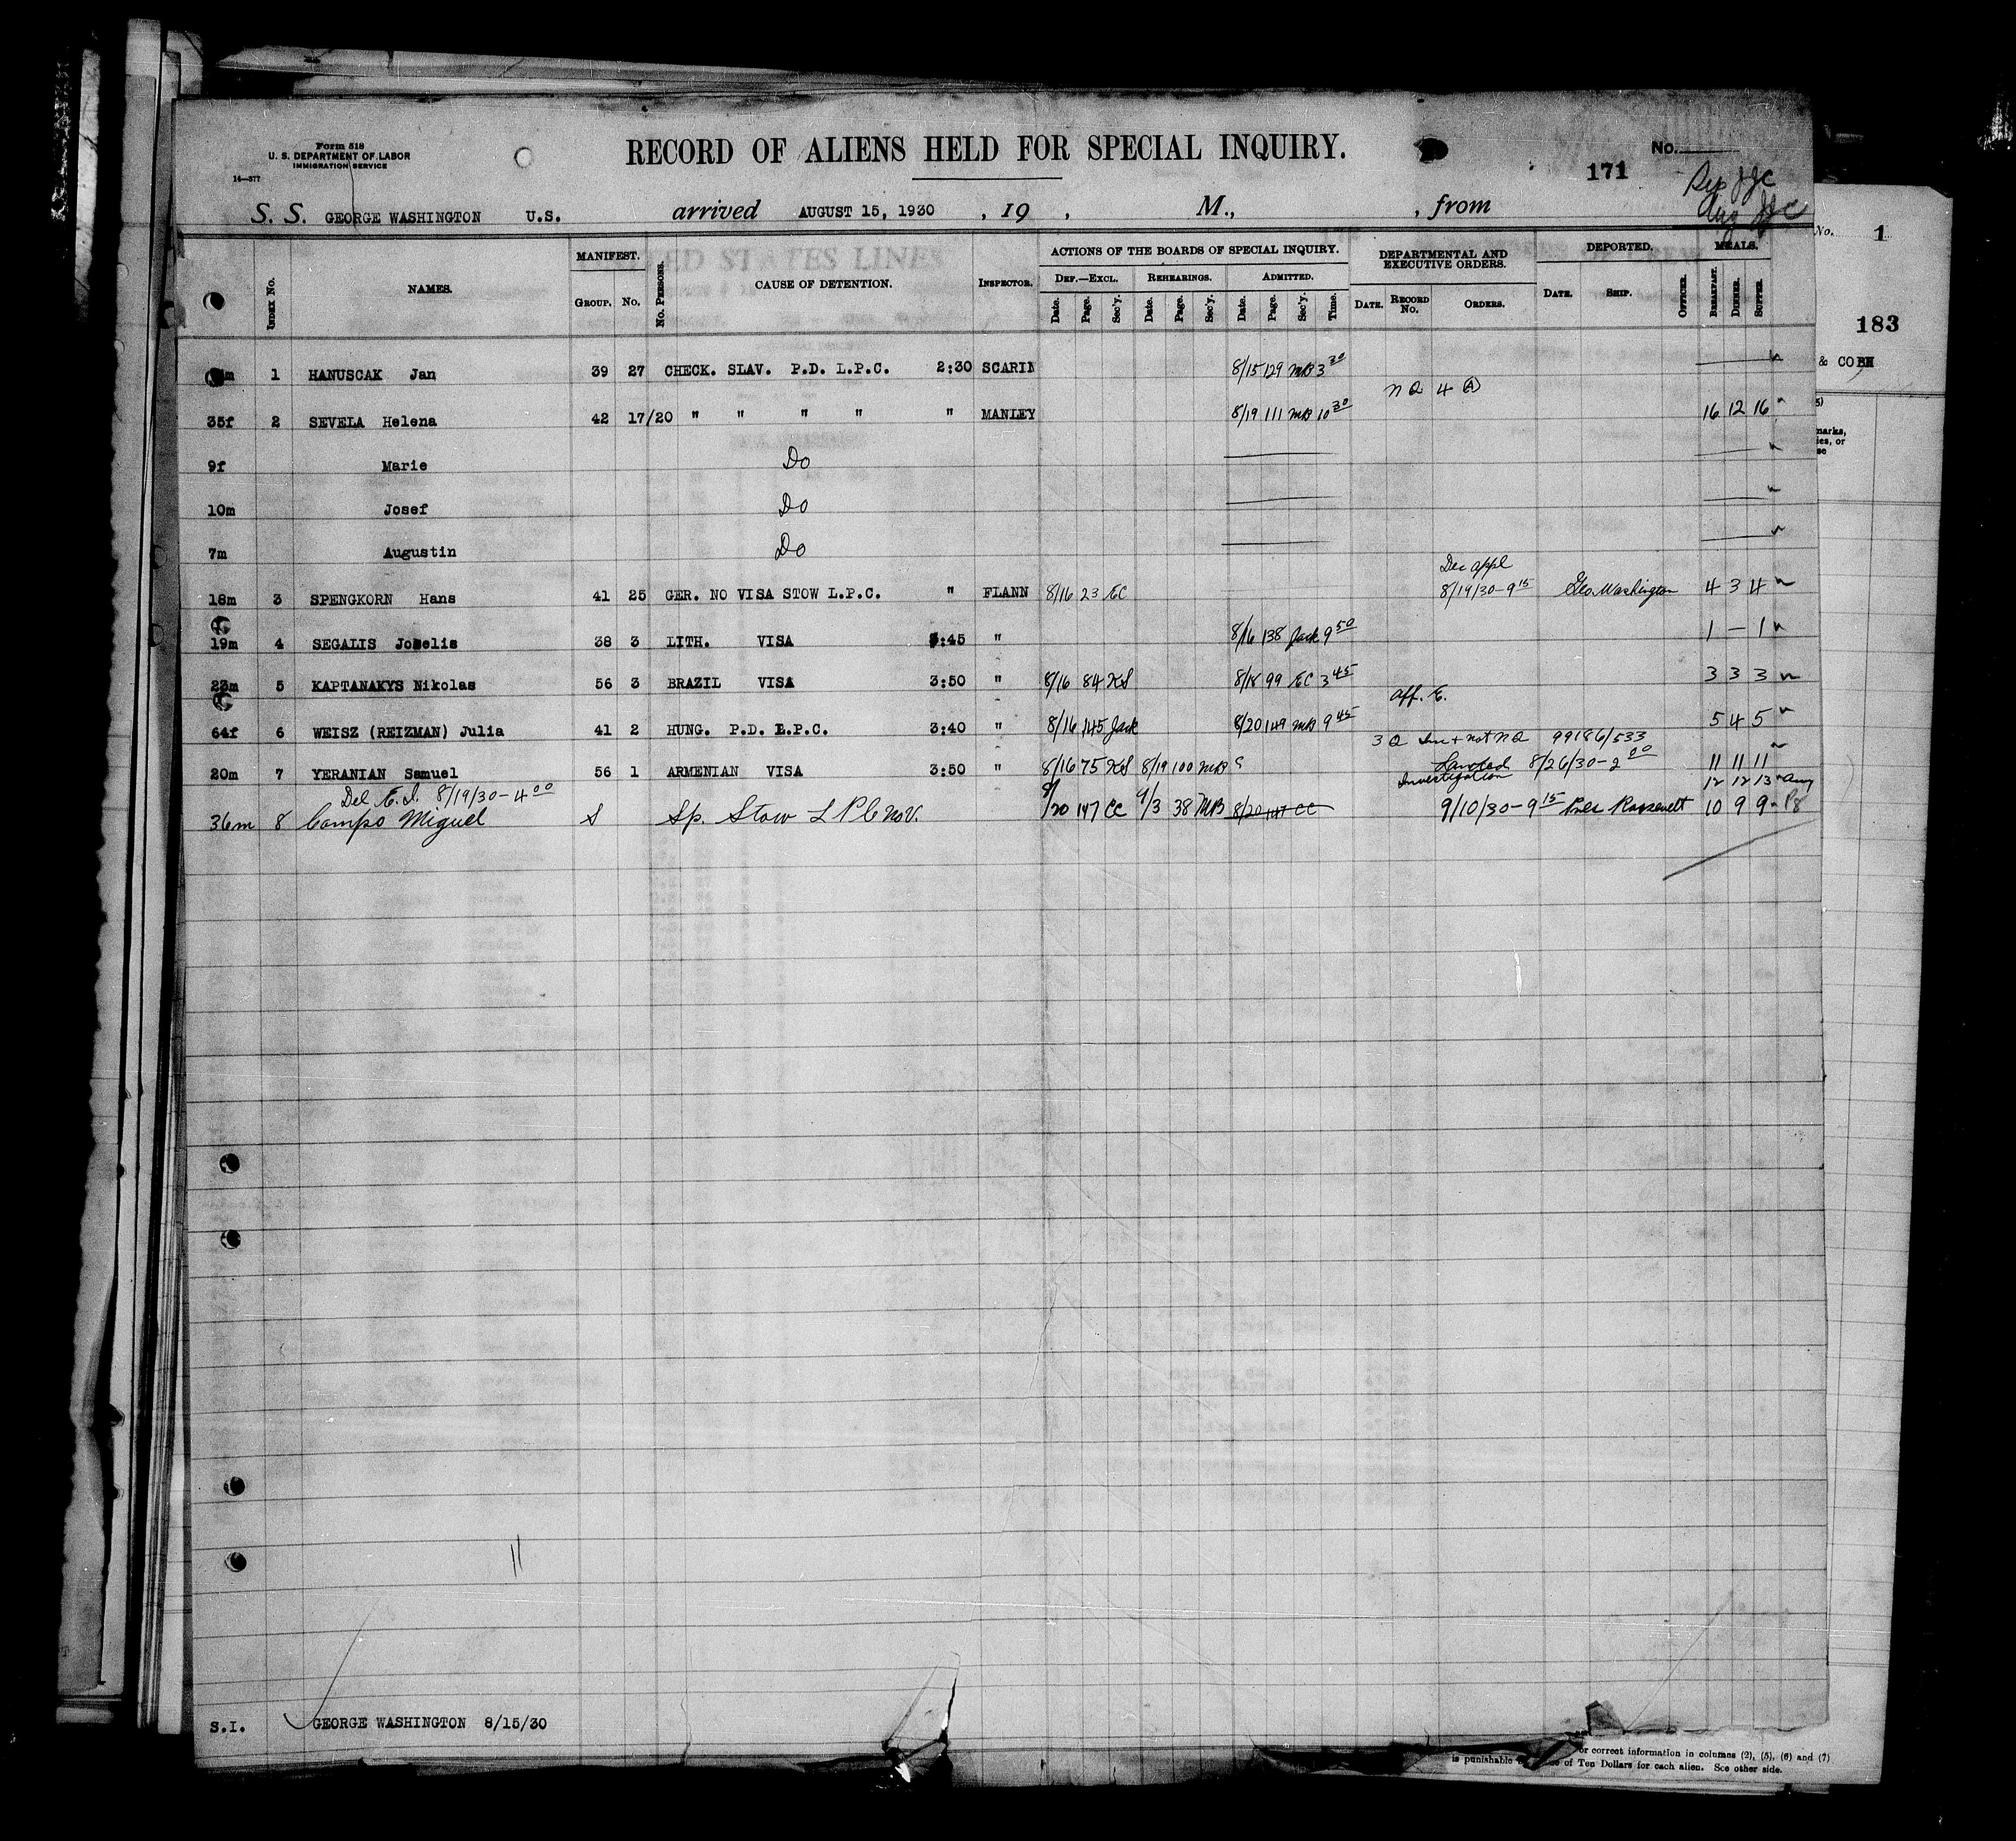 Form 518
U. S. DEPARTMENT OF LABOR
IMMIGRATION SERVICE
16—577
RECORD OF ALIENS HELD FOR SPECIAL INQUIRY.
No.
171
S. S. GEORGE WASHINGTON U.S. arrived AUGUST 15, 1930 , 19 , M., , from
INDEX No. NAMES. MANIFEST. GROUP. No. No. PERSONS. CAUSE OF DETENTION. INSPECTOR. ACTIONS OF THE BOARDS OF SPECIAL INQUIRY. DEF.—EXCL. Date. Page. Sec'y. REHEARINGS. Date. Page. Sec'y. ADMITTED. Date. Page. Sec'y. Time. DEPARTMENTAL AND EXECUTIVE ORDERS. DATE. RECORD No. ORDERS. DEPORTED. DATE. SHIP. OFFICER. MEALS. BREAKFAST. DINNER. SUPPER.
m 1 HANUSCAK Jan 39 27 CHECK. SLAV. P.D. L.P.C. 2:30 SCARIN 8/15 129 MB 3 30
35f 2 SEVELA Helena 42 17/20 " " " " " MANLEY 8/19 111 MB 10 30 16 12 16
9f Marie Do
10m Josef Do
7m Augustin Do
Dec appl
18m 3 SPENGKORN Hans 41 25 GER. NO VISA STOW L.P.C. " FLANN 8/16 23 EC 8/19/30-9 15 Geo. Washington 4 3 4
19m 4 SEGALIS Joselis 38 3 LITH. VISA :45 " 8/16 138 Jack 9 50 1 — 1
23m 5 KAPTANAKYS Nikolas 56 3 BRAZIL VISA 3:50 " 8/16 84 KS 8/18 99 EC 3 45 3 3 3
aff. E.
64f 6 WEISZ (REIZMAN) Julia 41 2 HUNG. P.D. L.P.C. 3:40 " 8/16 145 Jack 8/20 149 MB 9 45 5 4 5
99186/533
20m 7 YERANIAN Samuel 56 1 ARMENIAN VISA 3:50 " 8/16 75 KS 8/19 100 MB Landed 8/26/30-2 00 11 11 11
Investigation 12 12 13 Aug
Del E.I. 8/19/30-4 00
36m 8 Campo Miguel S Sp. Stow L P C no V. 8/20 147 CC 9/3 38 MB 8/20 147 CC 9/10/30-9 15 Pres Roosevelt 10 9 9
11
S.I. GEORGE WASHINGTON 8/15/30
No. 1
183
& CO
marks,
ies, or
se
or correct information in columns (2), (5), (6) and (7)
is punishable of Ten Dollars for each alien. See other side.